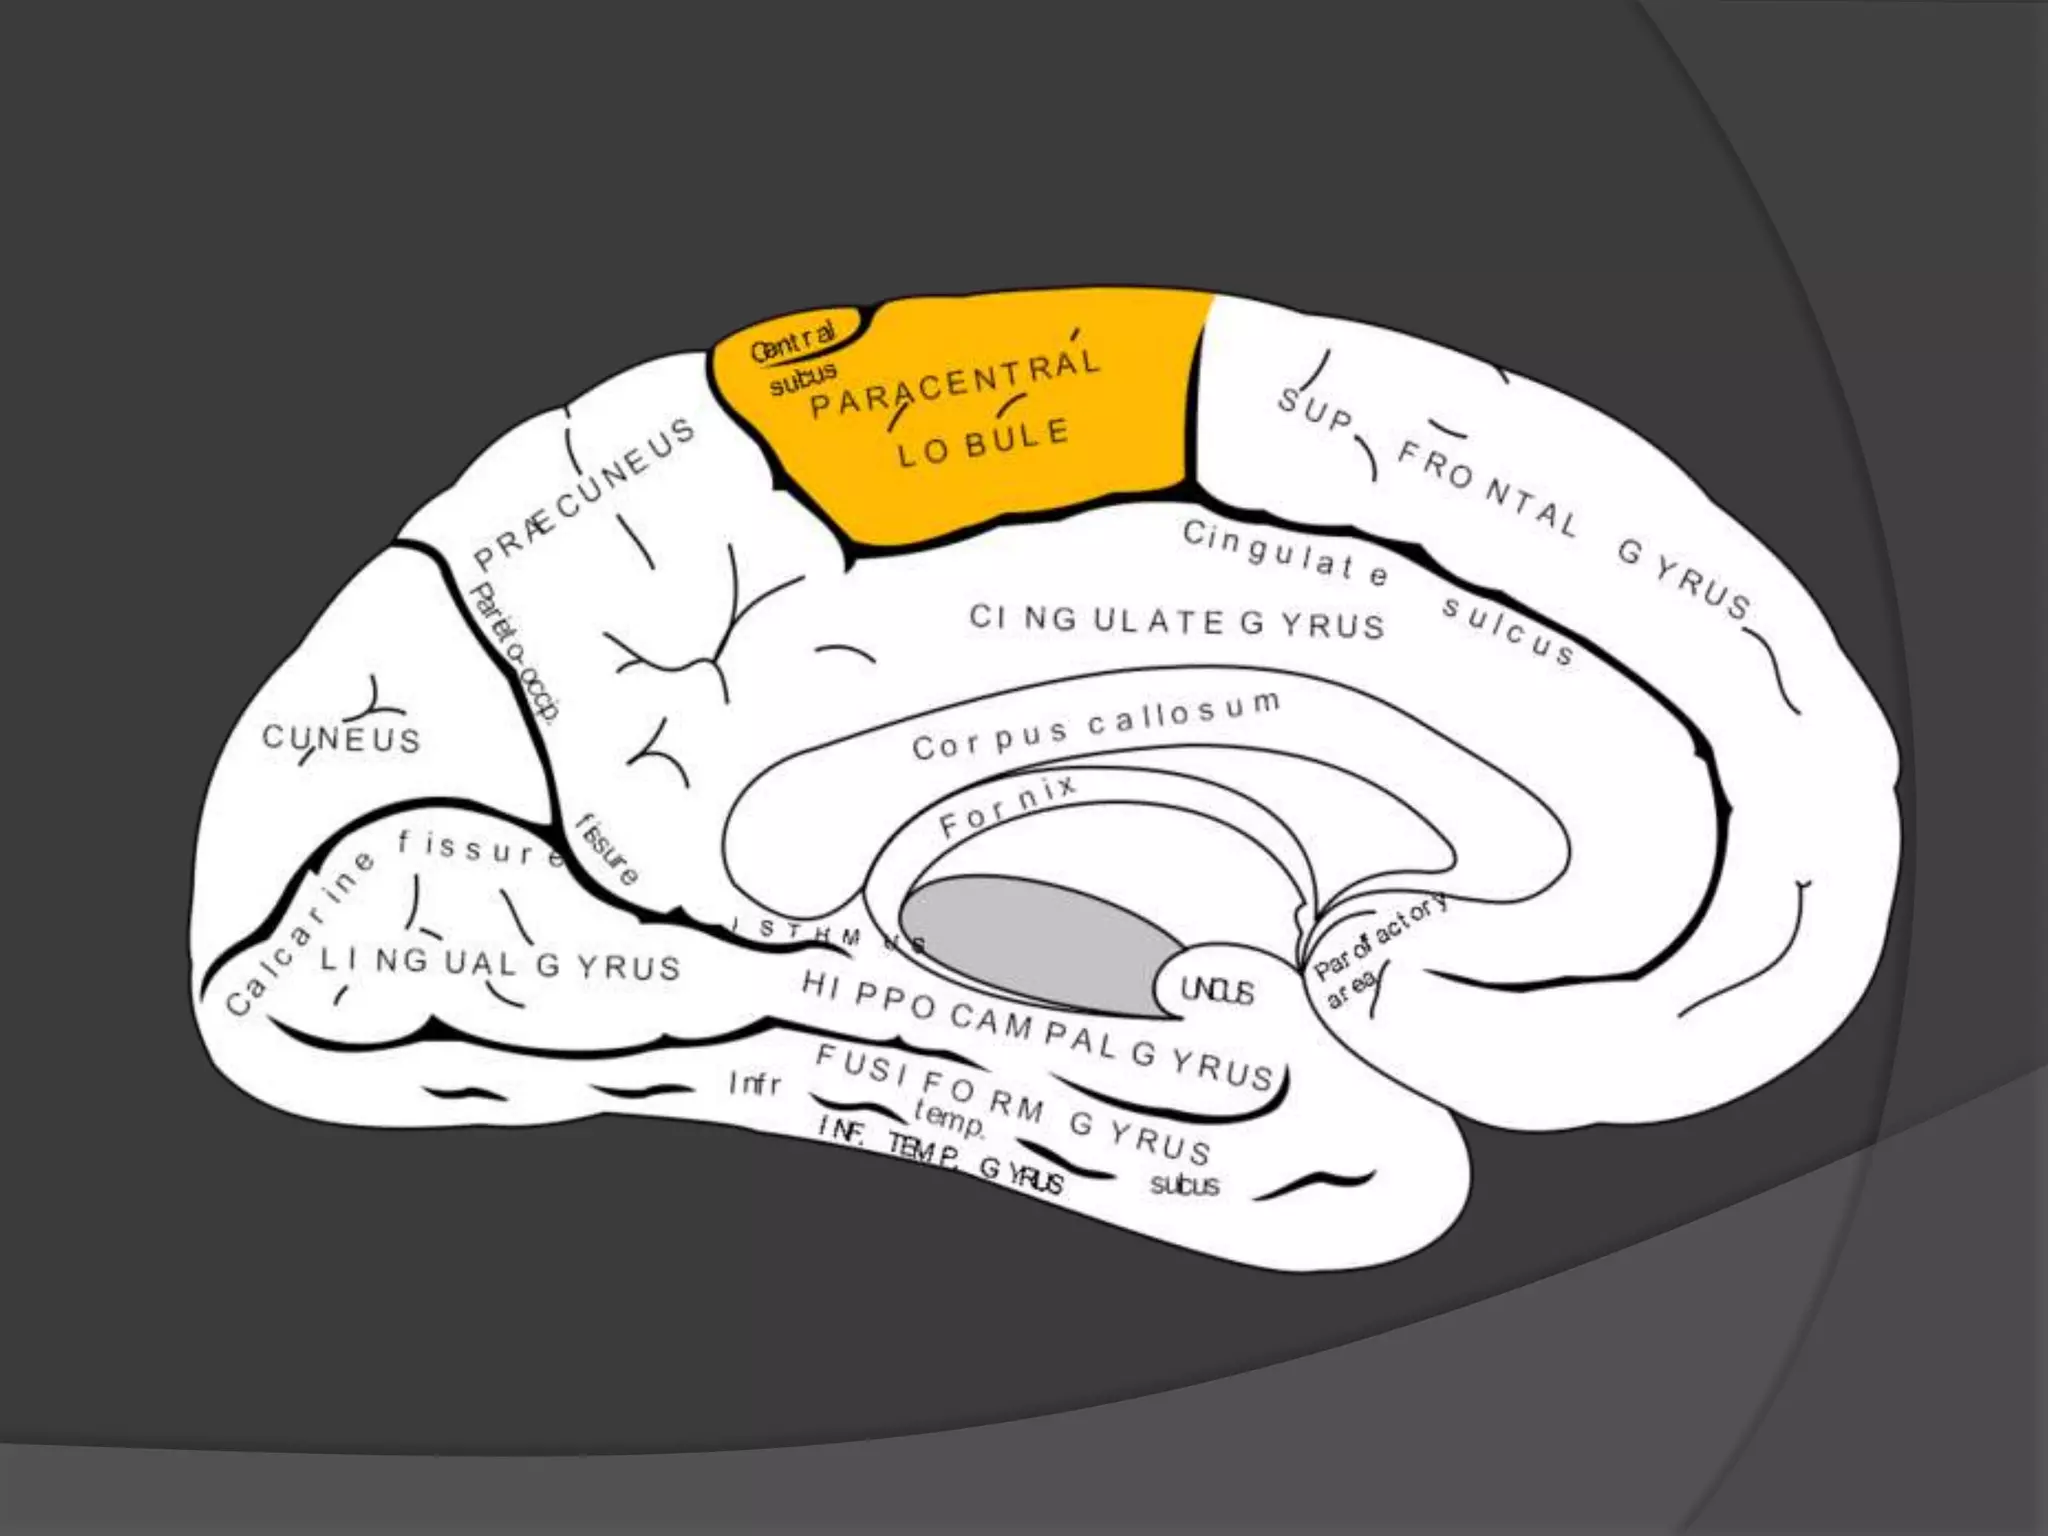 Central
sulcus
PARACENTRAL
LOBULE
SUP. FRONTAL GYRUS
PRÆCUNEUS
Cingulate sulcus
CINGULATE GYRUS
Parieto-occip.
fissure
CUNEUS
Corpus callosum
Fornix
Calcarine fissure
ISTHMUS
LINGUAL GYRUS
UNCUS
Parolfactory
area
HIPPOCAMPAL GYRUS
FUSIFORM GYRUS
Infr temp. sulcus
INF. TEMP. GYRUS